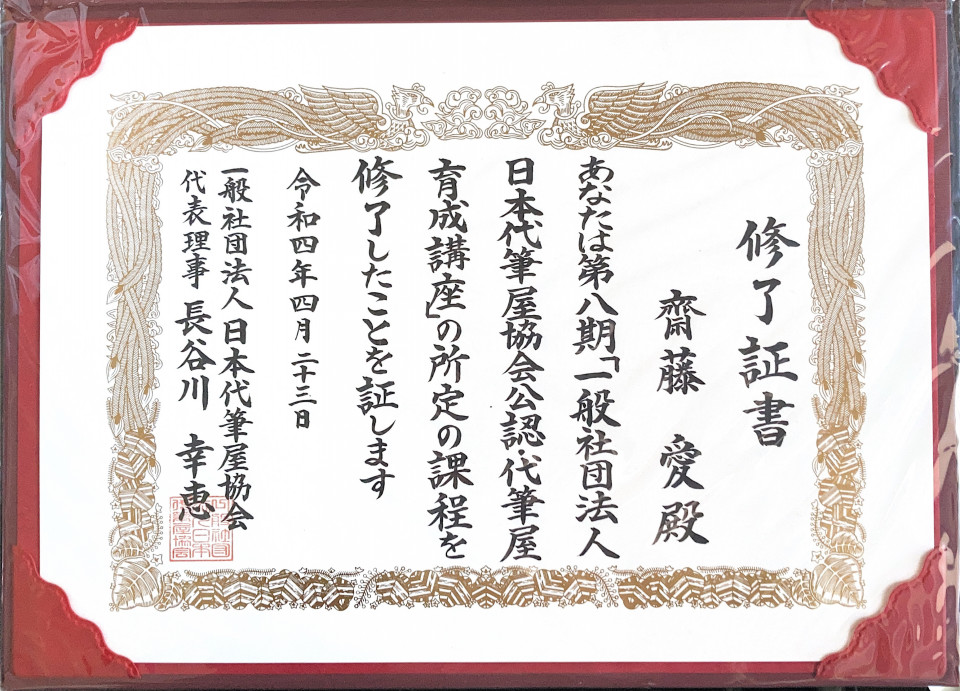 修了証書
齋藤 愛殿
あなたは第八期「一般社団法人
日本代筆屋協会公認・代筆屋
育成講座」の所定の課程を
修了したことを証します
令和四年四月二十三日
一般社団法人日本代筆屋協会
代表理事 長谷川 幸恵